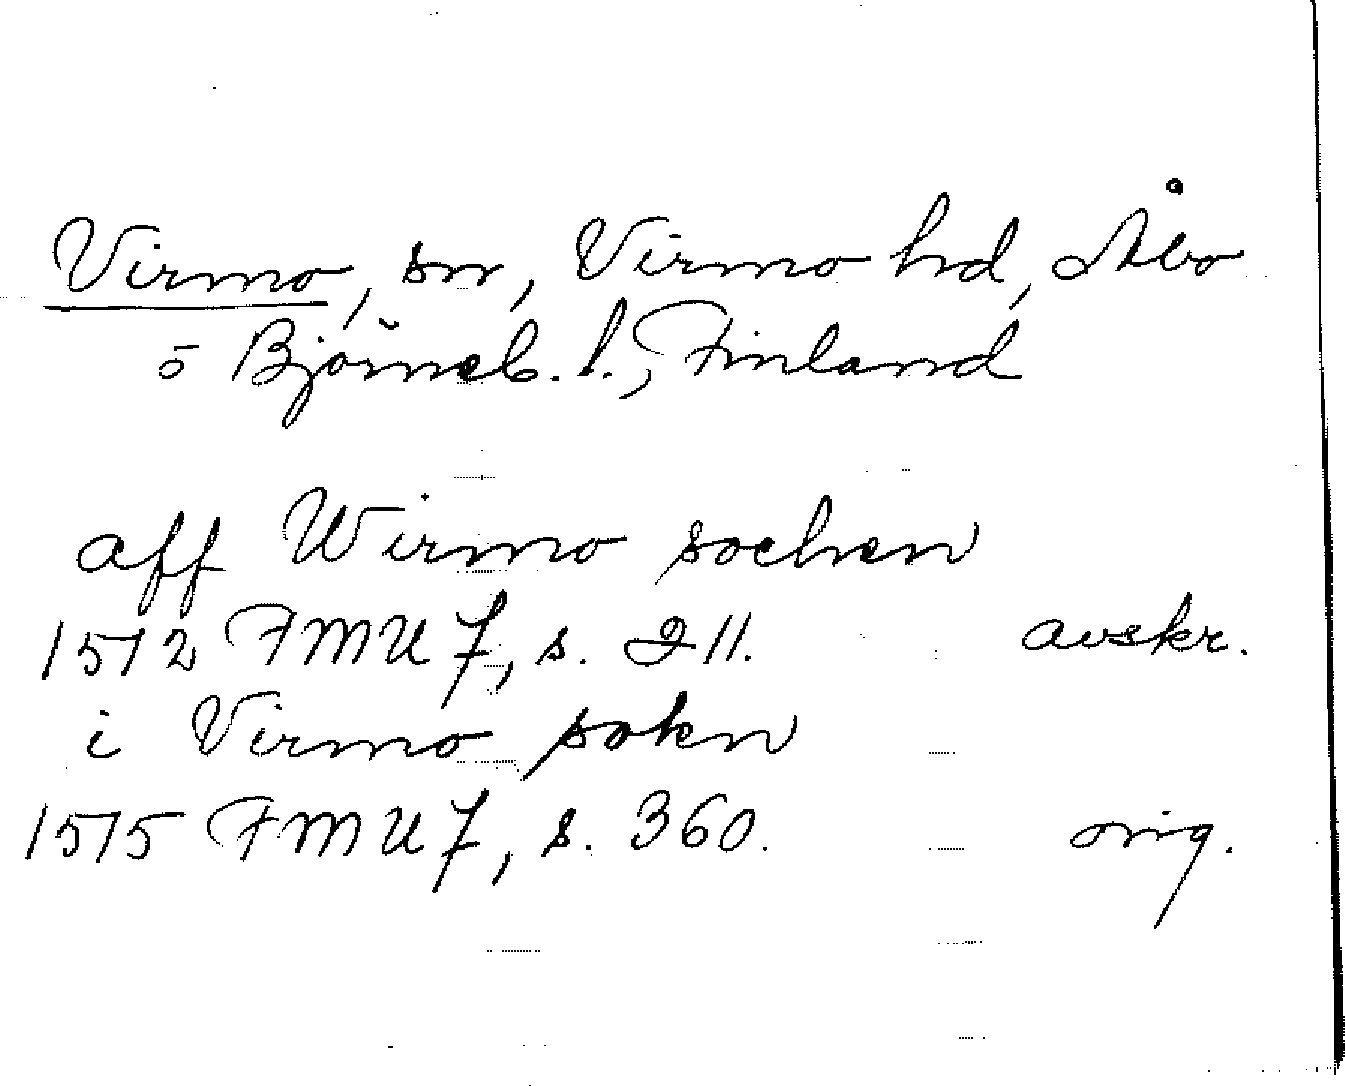 Virmo, sn, Virmo hrd, Åbo
o Björneb. l., Finland
aff Wirmo sochen
1512 FMU 7, s. 211. avskr.
i Virmo sokn
1515 FMU 7, s. 360. orig.